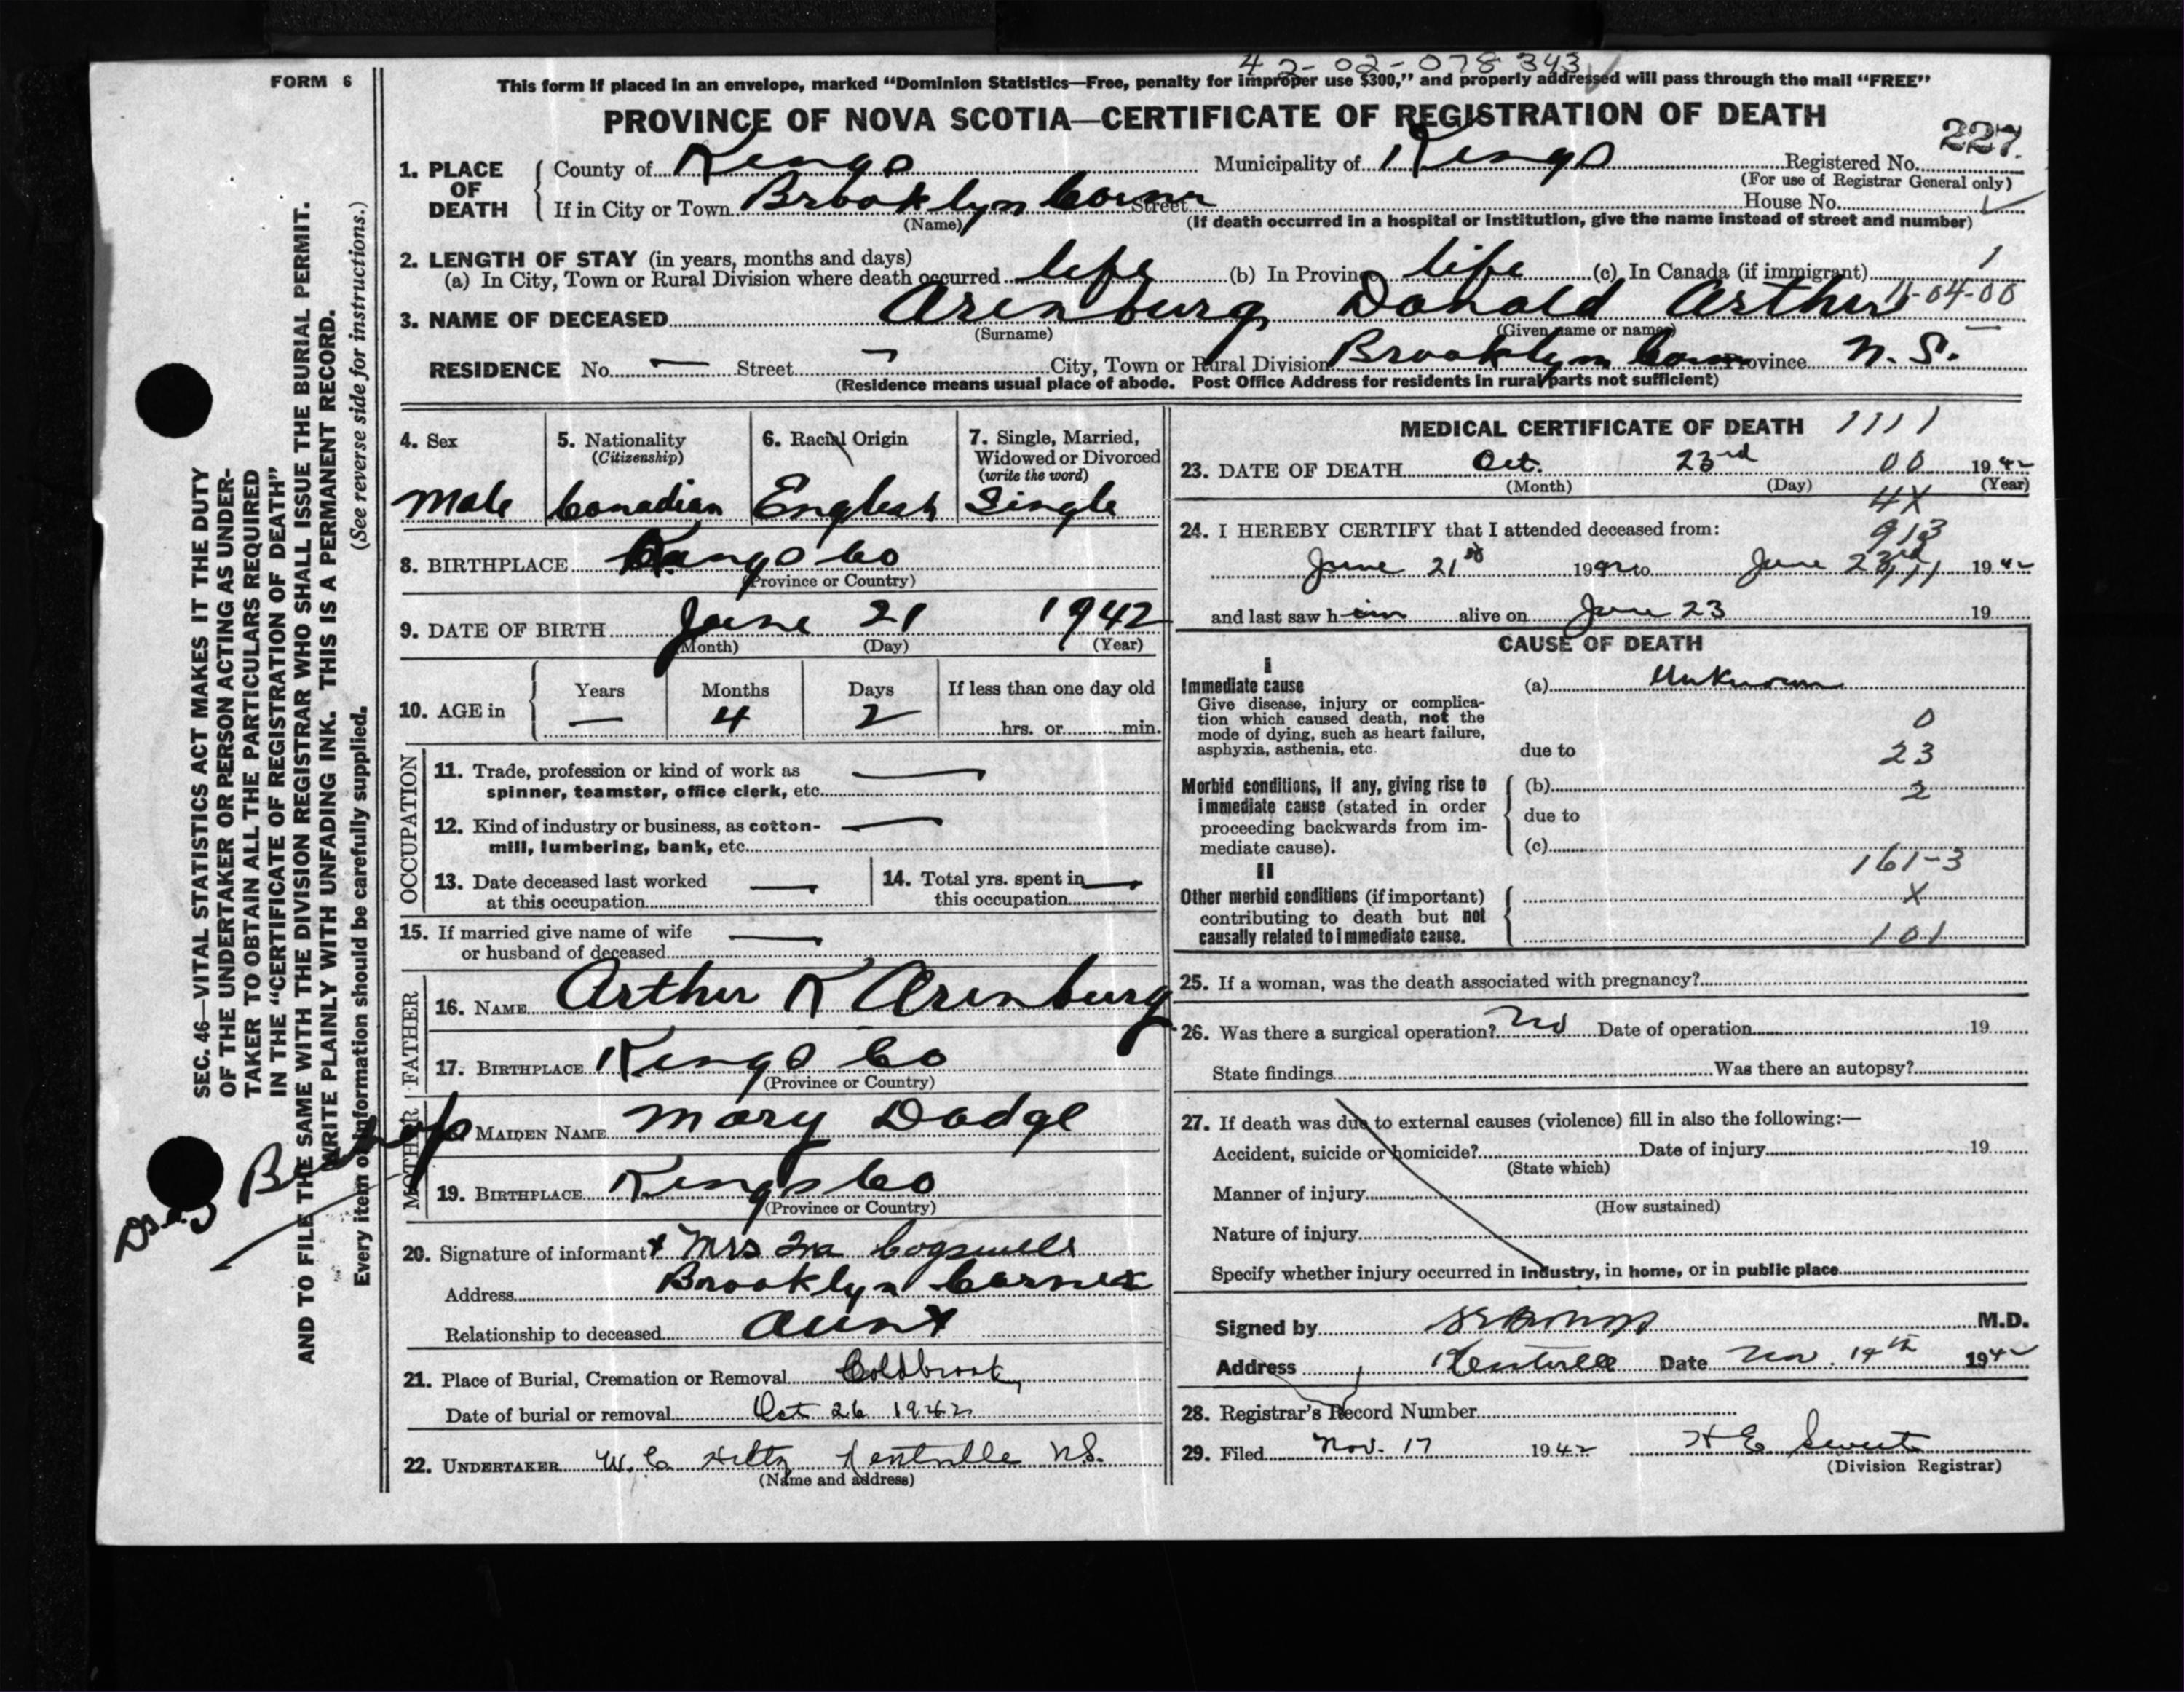 42-02-078343
FORM 6
This form if placed in an envelope, marked “Dominion Statistics—Free, penalty for improper use $300,” and properly addressed will pass through the mail “FREE”
PROVINCE OF NOVA SCOTIA—CERTIFICATE OF REGISTRATION OF DEATH
227.
1. PLACE OF DEATH County of Kings Municipality of Kings Registered No.
(For use of Registrar General only)
If in City or Town Brooklyn Corner Street House No.
(Name) (If death occurred in a hospital or institution, give the name instead of street and number)
2. LENGTH OF STAY (in years, months and days)
(a) In City, Town or Rural Division where death occurred life (b) In Province life (c) In Canada (if immigrant) 1
3. NAME OF DECEASED Arenburg Donald Arthur 11-04-00
(Surname) (Given name or names)
RESIDENCE No. — Street City, Town or Rural Division Brooklyn Corner Province N. S.
(Residence means usual place of abode. Post Office Address for residents in rural parts not sufficient)
4. Sex 5. Nationality 6. Racial Origin 7. Single, Married,
(Citizenship) Widowed or Divorced
(write the word)
Male Canadian English Single
8. BIRTHPLACE Kings Co
(Province or Country)
9. DATE OF BIRTH June 21 1942
(Month) (Day) (Year)
10. AGE in Years Months Days If less than one day old
— 4 2 hrs. or min.
OCCUPATION
11. Trade, profession or kind of work as —
spinner, teamster, office clerk, etc.
12. Kind of industry or business, as cotton- —
mill, lumbering, bank, etc.
13. Date deceased last worked — 14. Total yrs. spent in —
at this occupation this occupation
15. If married give name of wife —
or husband of deceased
FATHER
16. NAME Arthur K Arenburg
17. BIRTHPLACE Kings Co
(Province or Country)
MOTHER
MAIDEN NAME Mary Dodge
19. BIRTHPLACE Kings Co
(Province or Country)
20. Signature of informant x Mrs Ira Cogswell
Address Brooklyn Corner
Relationship to deceased Aunt
21. Place of Burial, Cremation or Removal Coldbrook
Date of burial or removal Oct 26 1942
22. UNDERTAKER W. C. Hiltz Kentville N.S.
(Name and address)
MEDICAL CERTIFICATE OF DEATH 1111
23. DATE OF DEATH Oct. 23rd 00 1942
(Month) (Day) (Year)
4X
24. I HEREBY CERTIFY that I attended deceased from: 913
June 21st 1942 to June 23rd 1942
and last saw him alive on June 23 19
CAUSE OF DEATH
I
Immediate cause (a) Unknown
Give disease, injury or complica-
tion which caused death, not the 0
mode of dying, such as heart failure,
asphyxia, asthenia, etc. due to 23
Morbid conditions, if any, giving rise to (b) 2
immediate cause (stated in order due to
proceeding backwards from im-
mediate cause). (c) 161-3
II
Other morbid conditions (if important) X
contributing to death but not
causally related to immediate cause. 101
25. If a woman, was the death associated with pregnancy?
26. Was there a surgical operation? No Date of operation 19
State findings Was there an autopsy?
27. If death was due to external causes (violence) fill in also the following:—
Accident, suicide or homicide? Date of injury 19
(State which)
Manner of injury
(How sustained)
Nature of injury
Specify whether injury occurred in industry, in home, or in public place
Signed by M.D.
Address Kentville Date Nov. 14th 1942
28. Registrar's Record Number
29. Filed Nov. 17 1942 H E Sweet
(Division Registrar)
SEC. 46—VITAL STATISTICS ACT MAKES IT THE DUTY
OF THE UNDERTAKER OR PERSON ACTING AS UNDER-
TAKER TO OBTAIN ALL THE PARTICULARS REQUIRED
IN THE “CERTIFICATE OF REGISTRATION OF DEATH”
AND TO FILE THE SAME WITH THE DIVISION REGISTRAR WHO SHALL ISSUE THE BURIAL PERMIT.
WRITE PLAINLY WITH UNFADING INK. THIS IS A PERMANENT RECORD.
Every item of information should be carefully supplied. (See reverse side for instructions.)
Bishop